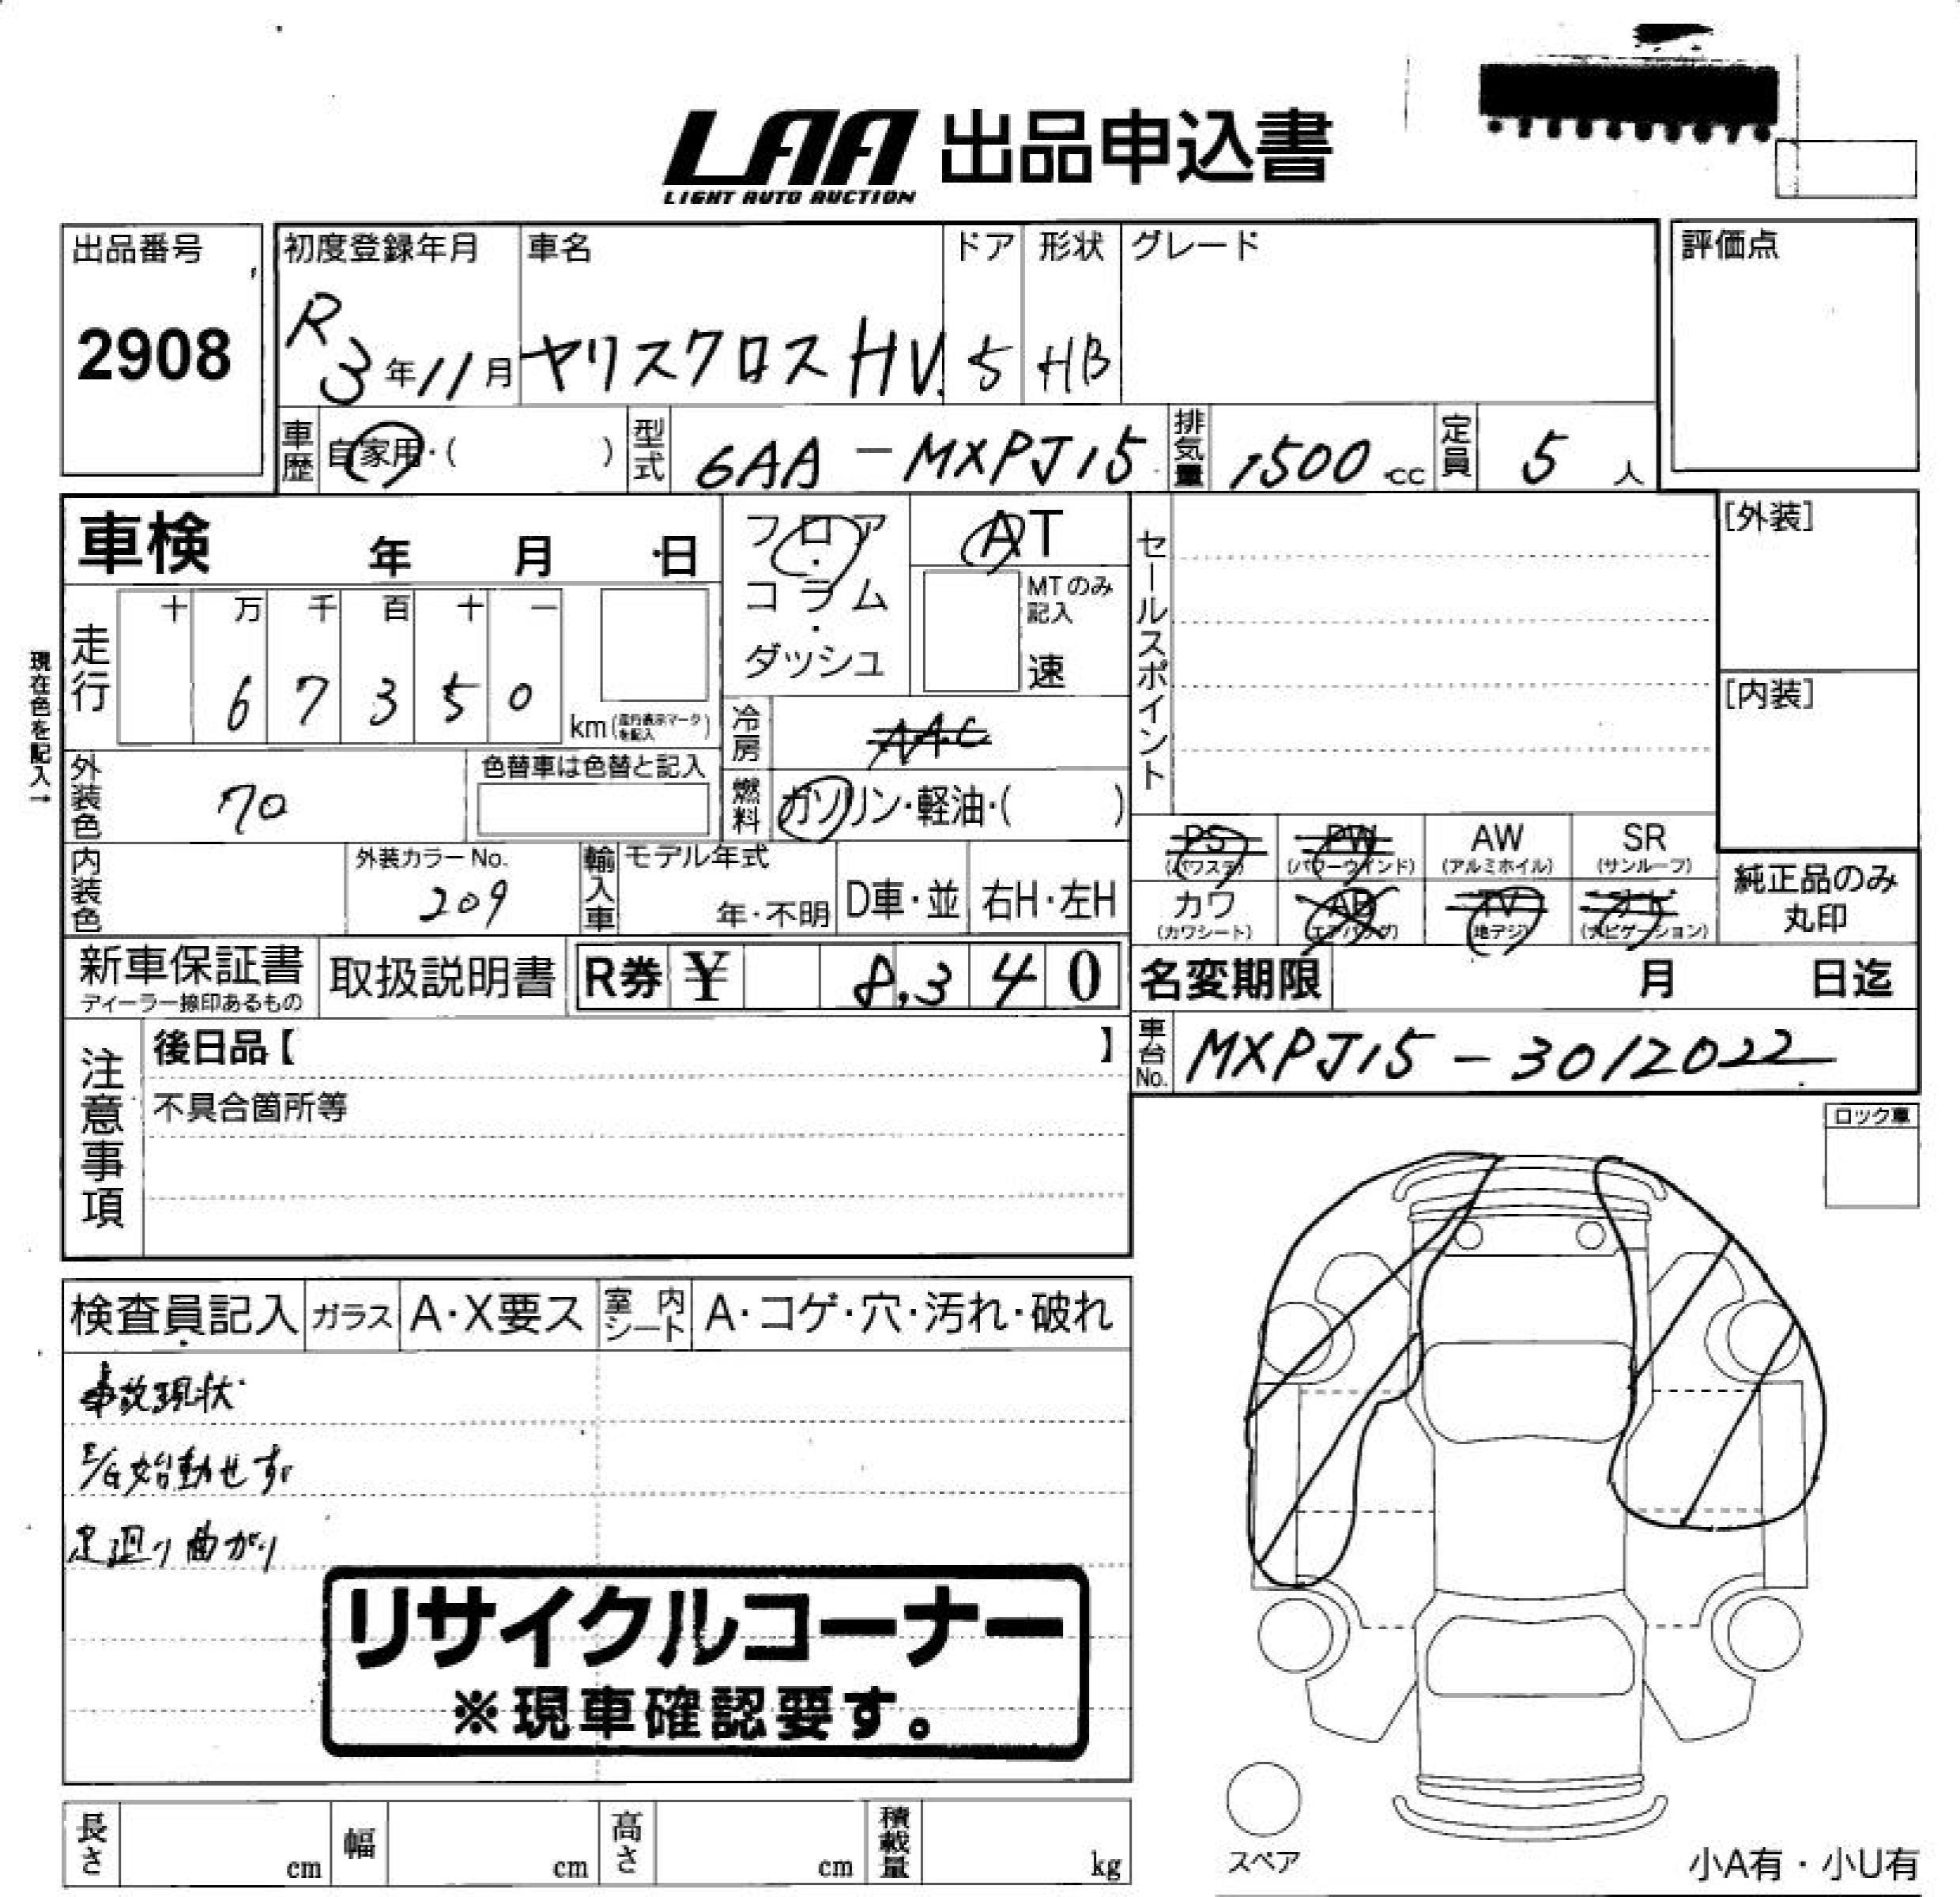 LAA 出品申込書
LIGHT AUTO AUCTION
出品番号
2908
初度登録年月
R3年11月
車名
ヤリスクロス HV.
ドア
5
形状
HB
グレード
評価点
車歴
自家用・( )
型式
6AA-MXPJ15
排気量
1500 cc
定員
5人
車検 年 月 日
フロア・コラム・ダッシュ
AT
MTのみ記入
速
セールスポイント
[外装]
[内装]
現在色を記入→
走行
十 万 千 百 十 一
6 7 3 5 0
km(走行表示マークを記入)
冷房
AAC
燃料
ガソリン・軽油・( )
外装色
70
色替車は色替と記入
内装色
外装カラーNo.
209
輸入車
モデル年式
年・不明
D車・並
右H・左H
PS
(パワステ)
PW
(パワーウインド)
AW
(アルミホイル)
SR
(サンルーフ)
カワ
(カワシート)
AB
(エアバッグ)
TV
(地デジ)
ナビ
(ナビゲーション)
純正品のみ
丸印
新車保証書
ディーラー捺印あるもの
取扱説明書
R券 ¥ 8,340
名変期限 月 日迄
注意事項
後日品【 】
不具合箇所等
車台No.
MXPJ15-3012022
ロック車
検査員記入
ガラス
A・X要ス
室内シート
A・コゲ・穴・汚れ・破れ
事故現状
E/G始動せず
足廻り曲がり
リサイクルコーナー
※現車確認要す。
長さ cm
幅 cm
高さ cm
積載量 kg
スペア
小A有・小U有